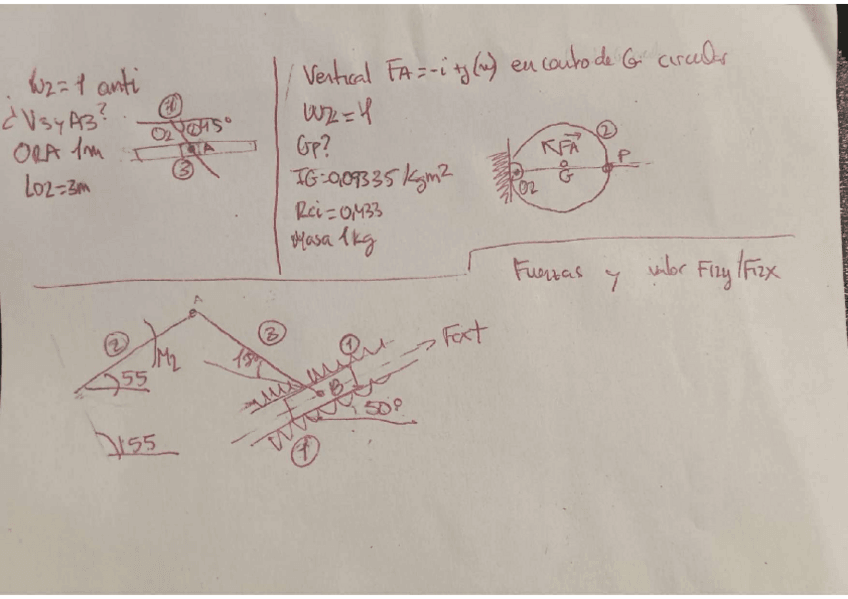 W2=1 anti
¿V3yA3?
O2A 1m
LO2=3m
1
O2 2 45°
A
3
Vertical FA=-i+j(N) en centro de G circular
W2=1
GP?
IG=0,09335 kgm2
Rci=0,433
Masa 1kg
2
FA
P
O2 G
Fuerzas y valor F12y/F12x
A
2 3
M2
55
15°
1
Fext
B
50º
1
55